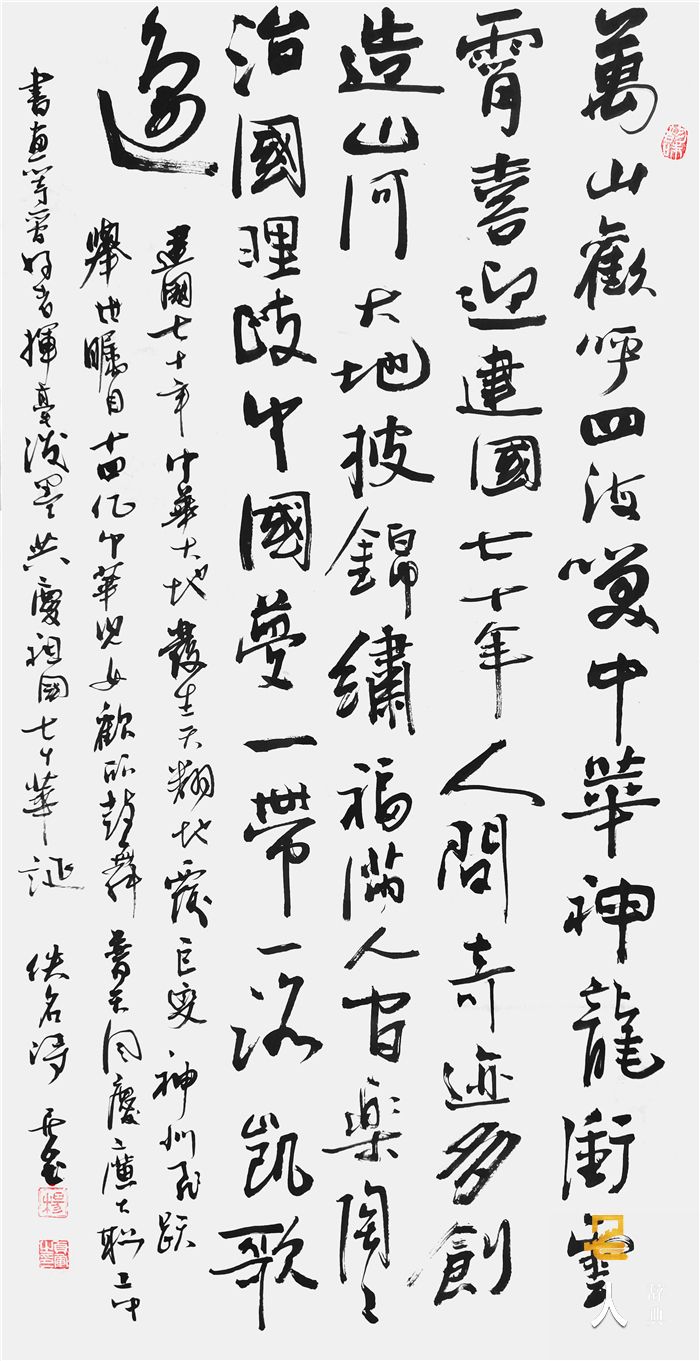 萬山歡呼四海笑中華神龍衝雲
霄喜迎建國七十年人間奇迹多創
造山河大地披錦繡福滿人间樂陶〻
治國理政中國夢一帶一路凱歌
建國七十年中華大地發生天翻地覆巨變神州飛跃
舉世矚目十四亿中華児女歡欣鼓舞普天同慶廣大職工中
書画等爱好者揮毫潑墨共慶祖國七十華誕 佚名詩
名人
辞典